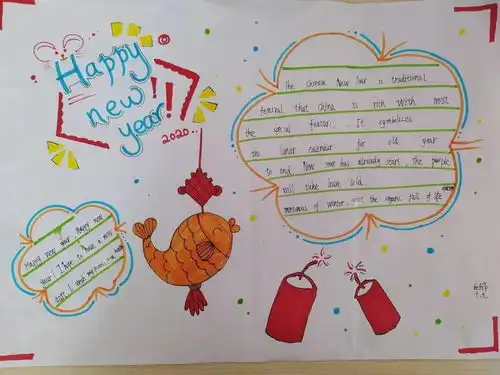 Happy
new
year!!!
2020
The Chinese New Year is traditional
festival that China to rich with most
the special featur. It symbolizes
the lunar calendar for old year
to end. New year has already start, The people
will take leave cold
monotonous of winter, greet the spring full of life
Happy new year, happy new
year! I hope to have a